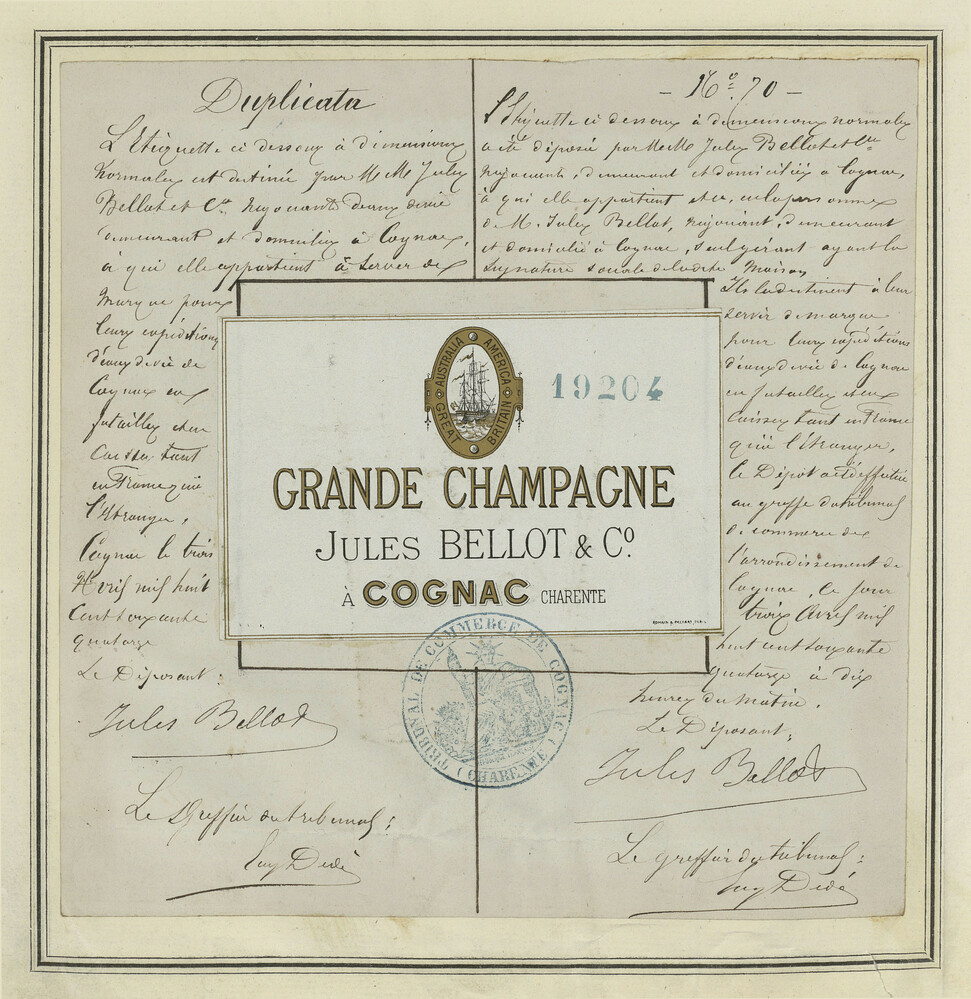 Duplicata
L'Etiquette ci dessous à dimensions
normales est destinée par M M. Jules
Bellot et Cie Négociants d'eaux de vie
demeurant et domiciliés à Cognac,
à qui elle appartient à server de
marque pour
leurs expéditions
d'eaux de vie de
Cognac en
futailles et en
Caisses tant
en France qu'à
l'étranger.
Cognac le trois
Avril mil huit
Cent soixante
quatorze
Le Déposant:
Jules Bellot
Le Greffier du tribunal:
Dédé
- No. 70 -
L'Etiquette ci dessous à dimensions normales
a été déposée par M M. Jules Bellot et Cie
Négociants, demeurant et domiciliés à Cognac,
à qui elle appartient et en la personne
de M. Jules Bellot, négociant, demeurant
et domicilié à Cognac, seul gérant ayant la
Signature sociale de la dite Maison
Ils la destinent à leur
servir de marque
pour leurs expéditions
d'eaux de vie de Cognac
en futailles et en
caisses tant en France
qu'à l'étranger,
le Dépot a été effectué
au greffe du tribunal
de commerce de
l'arrondissement de
Cognac, ce jour
trois Avril mil
huit cent soixante
quatorze à dix
heures du matin.
Le Déposant:
Jules Bellot
Le greffier du tribunal:
Dédé
AUSTRALIA AMERICA
GREAT BRITAIN
19204
GRANDE CHAMPAGNE
JULES BELLOT & Co.
À COGNAC CHARENTE
TRIBUNAL DE COMMERCE DE COGNAC
(CHARENTE)